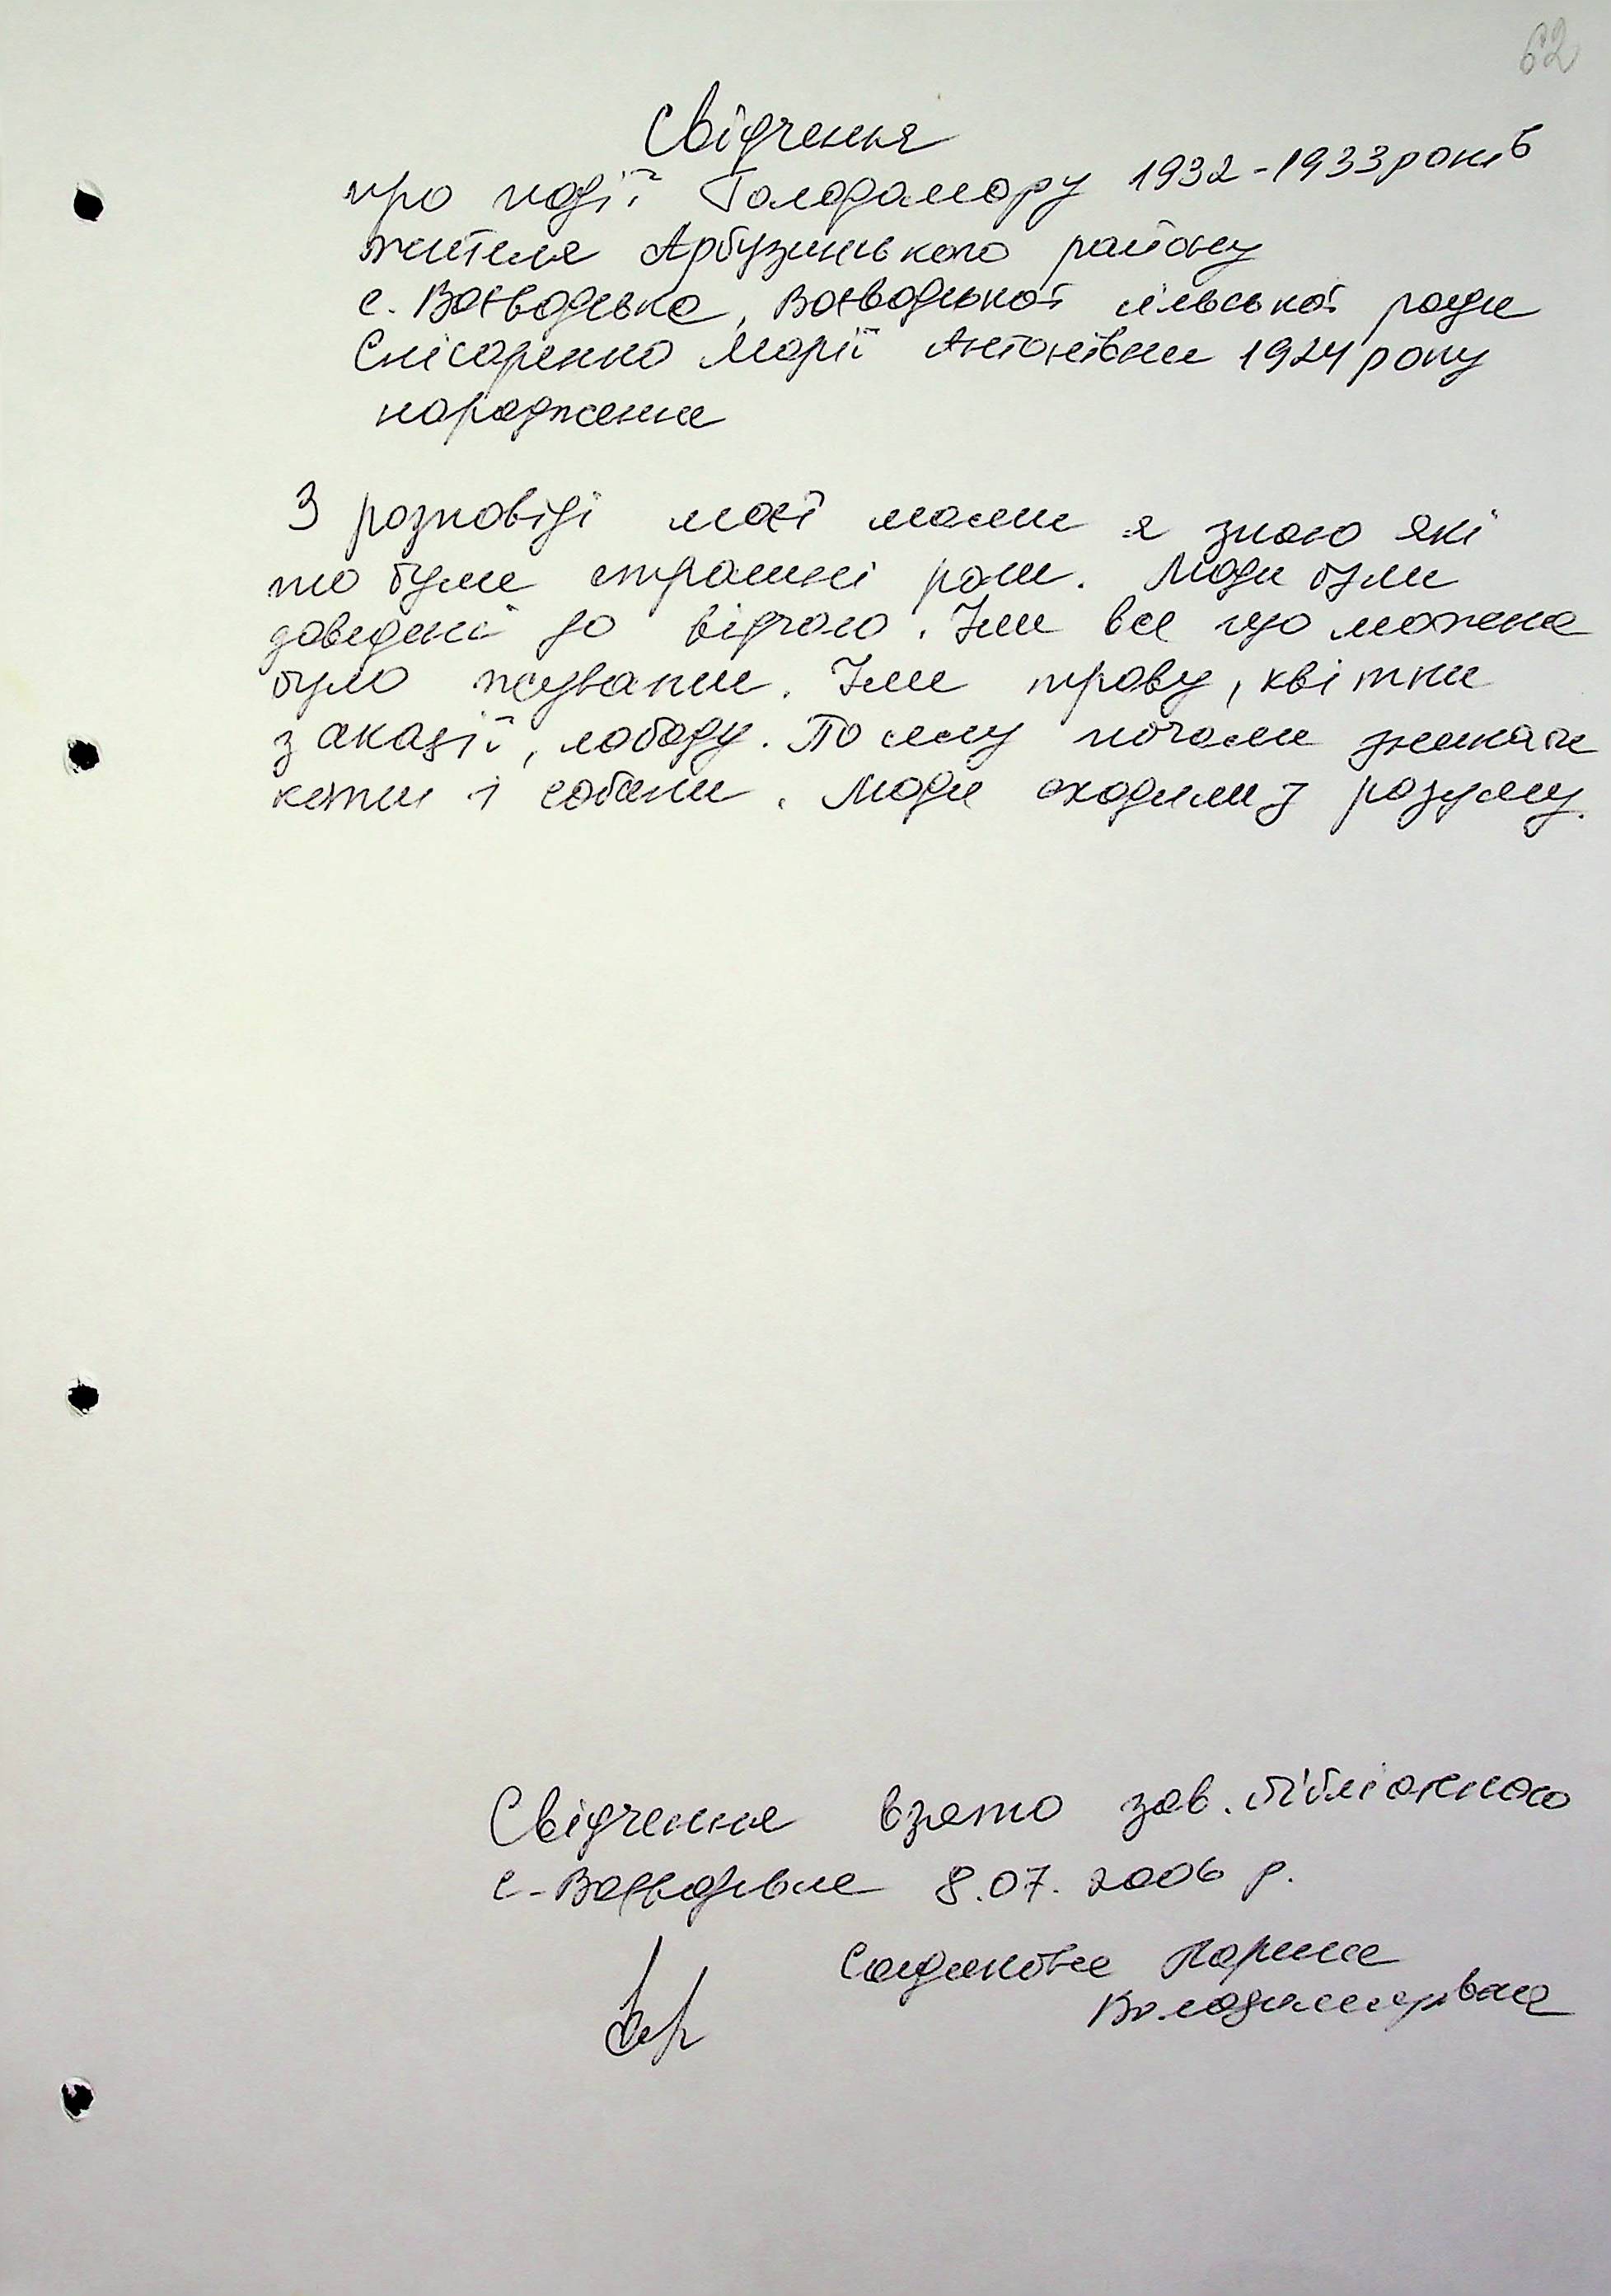 62
Свідчення
про події Голодомору 1932-1933 років
жителя Арбузинського району
с. Воєводське, Воєводської сільської ради
Слісаренко Марії Антонівни 1924 року
народження
З розповіді моєї мами я знаю які
то були страшні роки. Люди були
доведені до відчаю. Їли все що можна
було жувати. Їли траву, квітки
з акації, лободу. По селу почали зникати
коти і собаки. Люди сходили з розуму.
Свідчення взято зав. бібліотекою
с. Воєводське 8.07.2006 р.
Лариса
Володимирівна